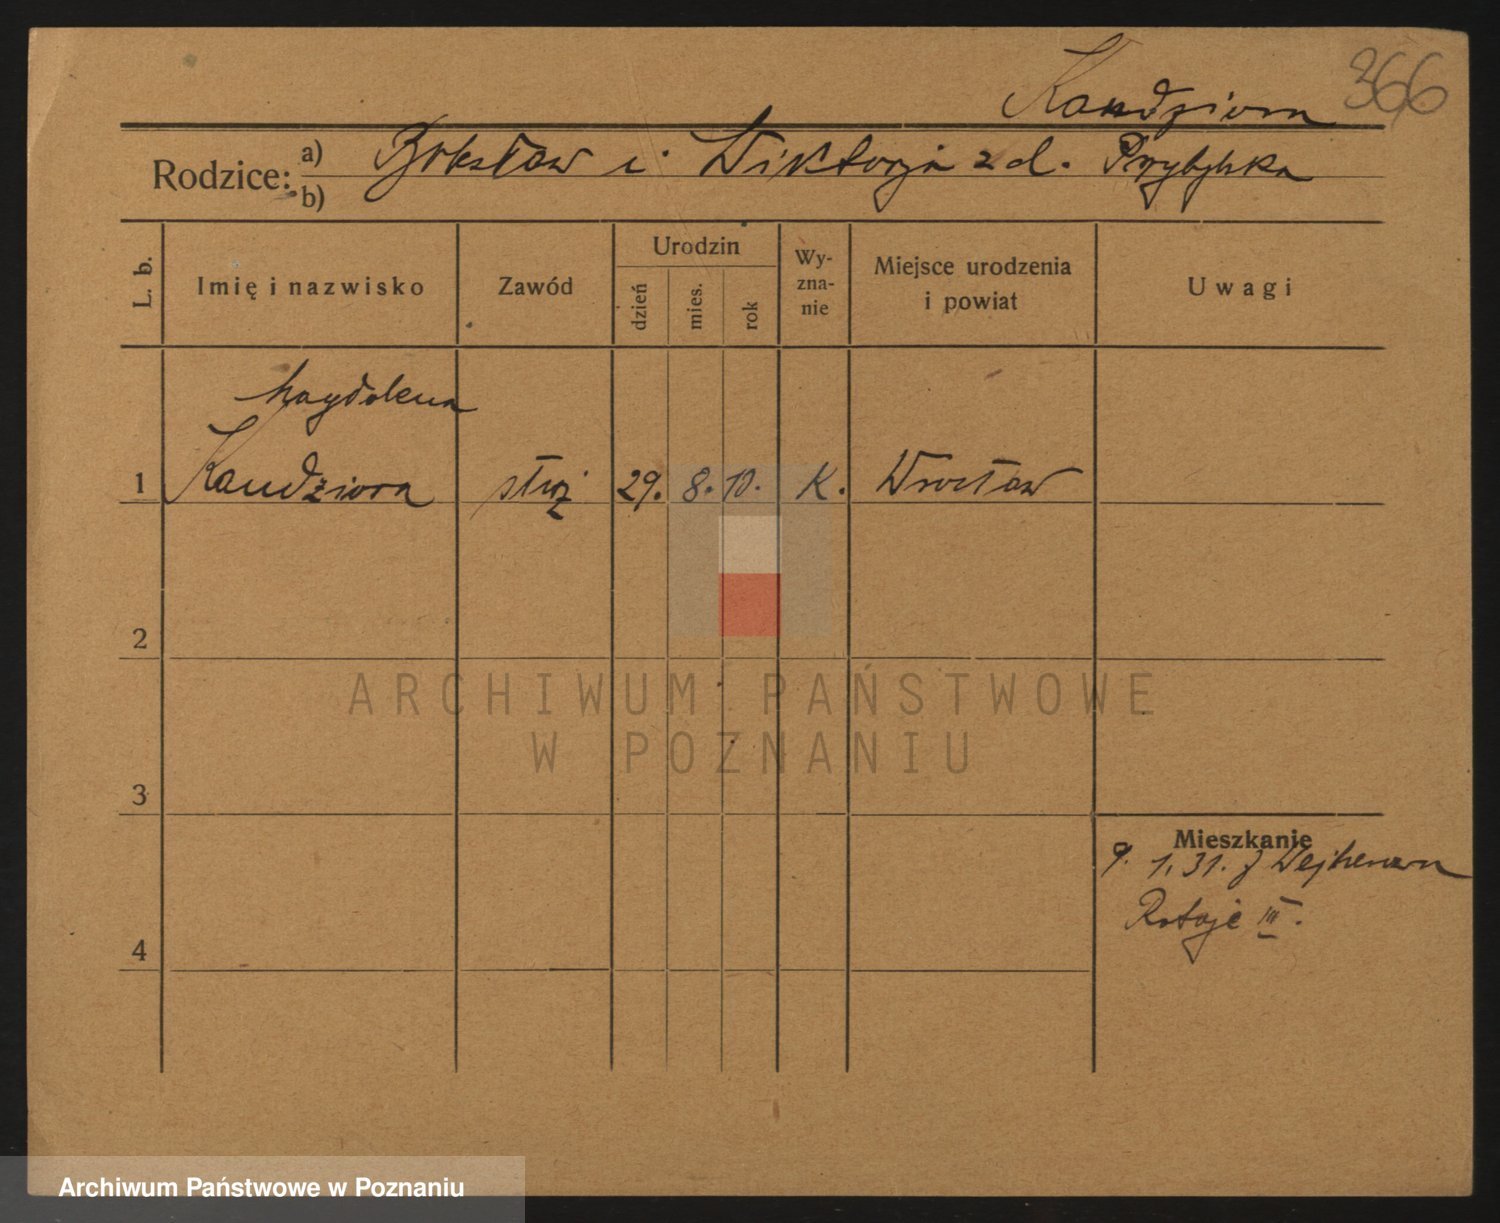 366
Kandziora
Rodzice: a) i Wiktorja z d. Przybylska
b)
L. b.
Imię i nazwisko
Zawód
Urodzin
dzień
mies.
rok
Wy-
zna-
nie
Miejsce urodzenia
i powiat
Uwagi
Magdalena
1 Kandziora służ 29. 8. 10. K. Wrocław
2
3
4
Mieszkanie
9. 1. 31. z Wejherowa
Rataje III.
ARCHIWUM PAŃSTWOWE
W POZNANIU
Archiwum Państwowe w Poznaniu